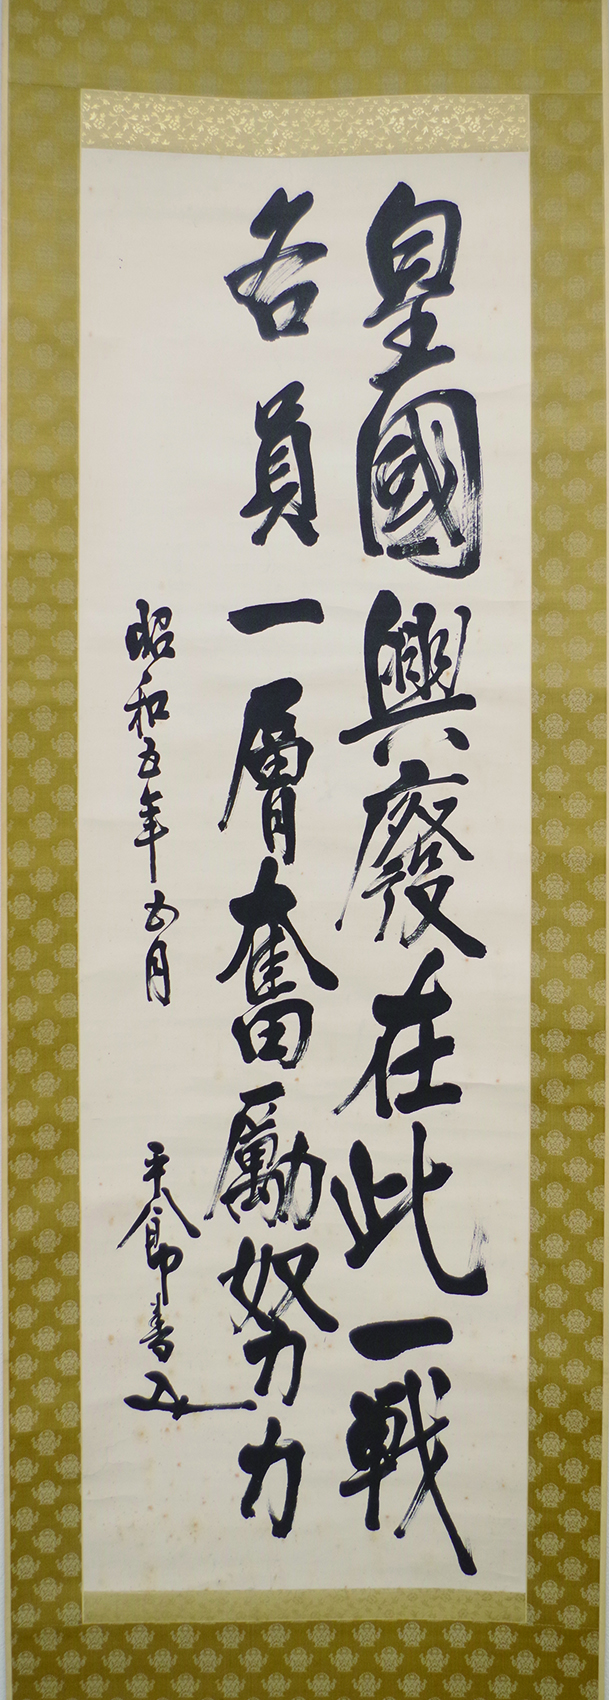 皇國興廢在此一戰
各員一層奮勵努力
昭和五年五月
平八郎書